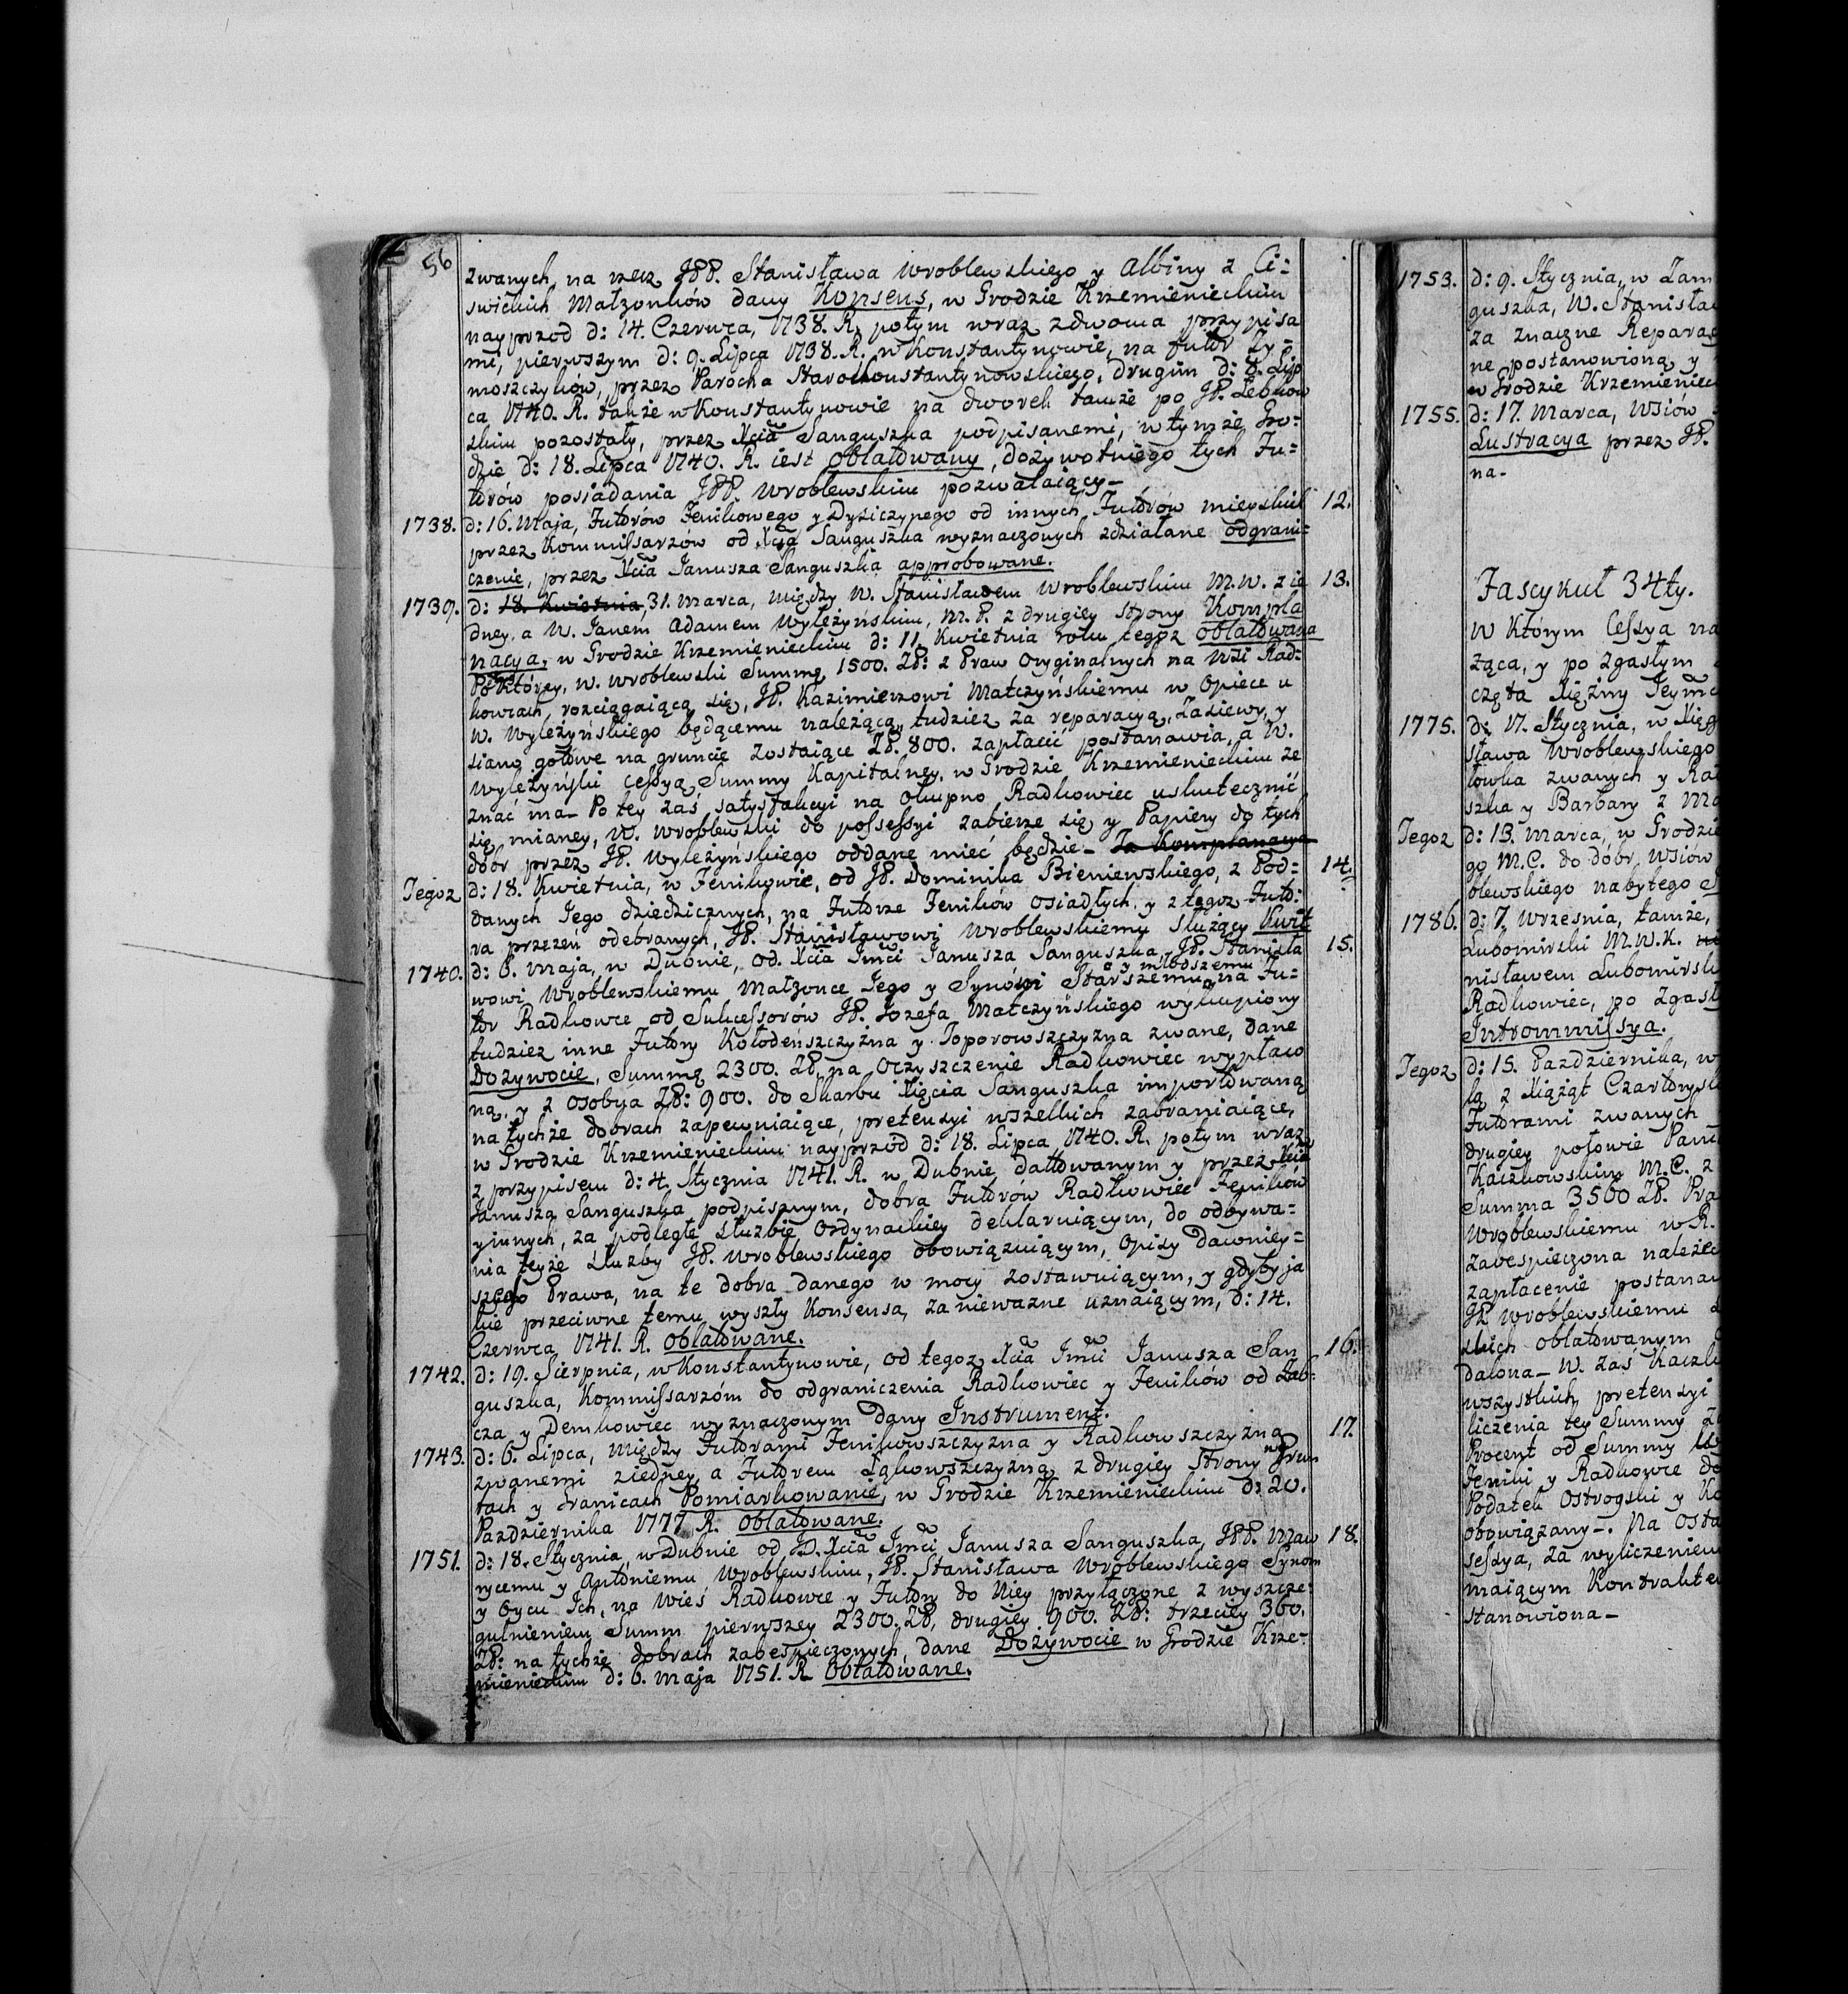 56
zwanych, na rzecz JPP. Stanisława Wroblewskiego y Albiny z Ci=
swickich Małzonków dany Konsens, w Grodzie Krzemienieckim
nayprzod d: 14. Czerwca, 1738. R. potym wraz zdwoma przypisa
mi, pierwszym d: 9. Lipca 1738. R. w Konstantynowie, na futor Ty=
moszczyków, przez Parocha Starokonstantynowskiego, drugim d: 8. Lip
ca 1740. R. także w Konstantynowie na dworek tamże po JP.
skim pozostały, przez Xcia Sanguszka podpisanemi, w tymże Gro=
dzie d: 18. Lipca 1740. R. iest oblatowany, dożywotniego tych Fu=
torów posiadania JPP. Wroblewskim pozwalaiący_
1738. d: 16. Maja, Futorów Fenikowego y Dysiczynego od innych Futorów mieyskich 12.
przez Kommissarzow od Xcia Sanguszka wyznaczonych zdziałane odgrani=
czenie, przez Xcia Janusza Sanguszka approbowane.
1739. d: 18. Kwietnia, 31. Marca, między W. Stanisławem Wroblewskim M.W. z ie 13.
dney, a W. Janem Adamem Wyleżyńskim, M.P. z drugiey strony Kompla
nacya, w Grodzie Krzemienieckim d: 11. Kwietnia roku tegoz oblatowana
Po którey, W. Wroblewski Summę 1500. ZP: z Praw Oryginalnych na Wsi Rad=
kowcach, rozciągaiącą się, JP. Kazimierzowi Matczyńskiemu w Opiece u
W. Wyleżyńskiego będącemu należącą, tudzież za reparacyą, Zasiewy, y
siano gotowe na gruncie zostaiące ZP. 800. zapłacić postanawia, a W.
Wyleżyński cessyą Summy Kapitalney, w Grodzie Krzemienieckim ze
znać ma_ Po tey zaś satysfakcyi na Okupno Radkowiec uskutecznić
się mianey, W. Wroblewski do possessyi zabierze się y Papiery do tych
dóbr przez JP. Wyleżyńskiego oddane mieć będzie_ Ta Komplanacya
Tegoz d: 18. Kwietnia, w Fenikowie, od JP. Dominika Bieniewskiego, z Pod= 14.
danych Jego dziedzicznych, na Futorze Feników osiadłych, y z tegoz Futo=
ra przezeń odebranych, JP. Stanisławowi Wroblewskiemu służący Kwit
1740. d: 6. Maja, w Dubnie, od Xcia Jmci Janusza Sanguszka, JP. Stanisła 15.
wowi Wroblewskiemu Małzonce Jego y Synowi Starszemu y młodszemu na Fu=
tor Radkowce od Sukcessorów JP. Jozefa Matczyńskiego wykupiony
tudziez inne Futory Kołodeńszczyżna y Toporowszczyzna zwane, dane
Dożywocie, Summę 2300. ZP. na Oczyszczenie Radkowiec wypłaco
ną, y z osobna ZP: 900. do Skarbu Xięcia Sanguszka importowaną
na tychże dobrach zapewniaiące, pretensyi wszelkich zabraniaiące,
w Grodzie Krzemienieckim nayprzód d: 18. Lipca 1740. R. potym wraz
z przypisem d: 4. Stycznia 1741. R. w Dubnie datowanym y przez Xcia
Janusza Sanguszka podpisanym, dobra Futorów Radkowiec Feników
y innych, za podległe służbie Ordynackiey deklaruiącym, do odbywa=
nia teyże służby JP. Wroblewskiego obowiązuiącym, Opisy dawniey=
szego Prawa, na te dobra danego w mocy zostawuiącym, y gdyby ja
kie przeciwne temu wyszły Konsensa, za nieważne uznaiącym, d: 14.
Czerwca 1741. R. oblatowane.
1742. d: 19. Sierpnia, w Konstantynowie, od tegoz Xcia Jmci Janusza San 16.
guszka, Kommissarzóm do odgraniczenia Radkowiec y Feników od Zab=
cza y Demkowiec wyznaczonym dany Instrument.
1743. d: 6. Lipca, między Futorami Fenikowszczyzna y Radkowszczyzną 17.
zwanemi ziedney, a Futorem Łąkowszczyzną z drugiey strony w Grun
tach y Granicach Pomiarkowanie, w Grodzie Krzemienieckim d: 20.
Pazdziernika 1777. R. oblatowane.
1751. d: 18. Stycznia, w Dubnie od J.O. Xcia Jmci Janusza Sanguszka, JPP. Maw 18.
rycemu y Antoniemu Wroblewskim, JP. Stanisława Wroblewskiego Synom
y Oycu Ich, na Wieś Radkowce y Futory do Niey przyłączone z wyszcze=
gulnieniem Summ pierwszey 2300. ZP, drugiey 900. ZP: trzeciey 360.
ZP: na tychże dobrach zabespieczonych, dane Dożywocie w Grodzie Krze=
mienieckim d: 6. Maja 1751. R. Oblatowane.
1753. d: 9. Stycznia, w Zam
guszka, W. Stanisła
za znaczne Repara
ne postanowioną y
w Grodzie Krzemieniec
1755. d: 17. Marca, Wsiów
Lustracya przez JP.
na-
Fascykuł 34ty.
W którym Cessya na
żąca, y po zgasłym
częta Xiężny Jeymc
1775. d: 17. Stycznia, w Xię
sława Wroblewskiego
łówka zwanych y Ra
szka y Barbary z
Tegoz d: 13. Marca, w Grodzie
go M.C. do dóbr, Wsiów
blewskiego nabytego
1786. d: 7. Wrzesnia, tamże,
Lubomirski M.W.K.
nisławem Lubomirsk
Radkowiec, po zgas
Intrommissya.
Tegoz d: 15. Pazdziernika, w
lą z Xiążąt Czartorys
Futorami zwanych
drugiey połowie Pan
Kaczkowskim M.C. z
Summa 3500 ZP. Pra
Wroblewskiemu w R.
zabespieczona należe
zapłacenie postana
JP Wroblewskiemu
skich oblatowanym
dalona_ W. zaś Kaczk
wszystkich pretensyi
liczenia tey Summy
Procent od Summy
Feniki y Radkowce do
Podatek Ostrogski y Ko
obowiązany_. Na osta
sessya, za wyliczeniem
maiącym Kontrakte
stanowiona_